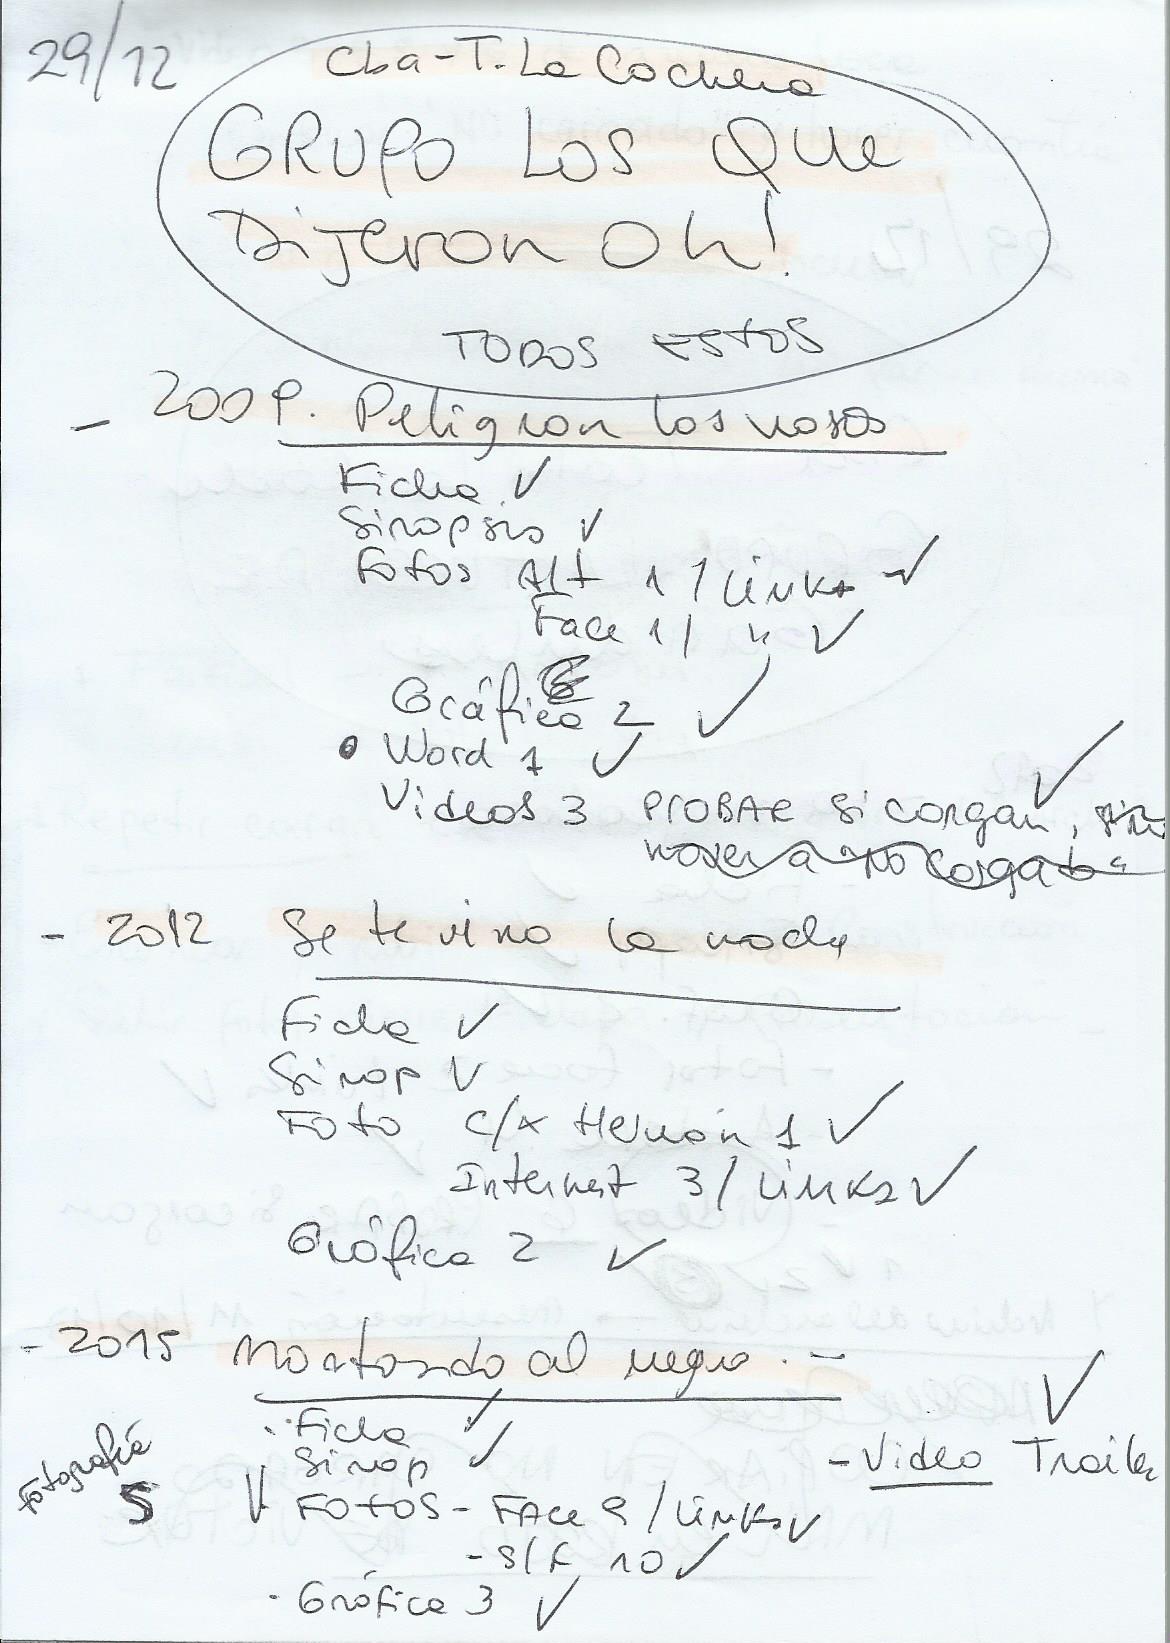 29/12
Cba - T. La Cochera
GRUPO LOS QUE
DIJERON OH!
TODOS ESTOS
- 2009. Peligran los vasos
Ficha ✓
Sinopsis ✓
Fotos Alt 1 / Links ✓
Face 1 / " ✓
Gráfica 2 ✓
• Word 1 ✓
Videos 3 PROBAR si cargan, sino ✓
mover a "no cargado"
- 2012 Se te vino la noche
Ficha ✓
Sinop ✓
Foto C/x Hernán 1 ✓
Internet 3 / Links ✓
Gráfica 2 ✓
- 2015 Matando al negro. -
- Ficha ✓
Sinop ✓
- Video Trailer ✓
Fotografía
5
✓ FOTOS - FACE 9 / Links ✓
- S/F 10 ✓
- Gráfica 3 ✓